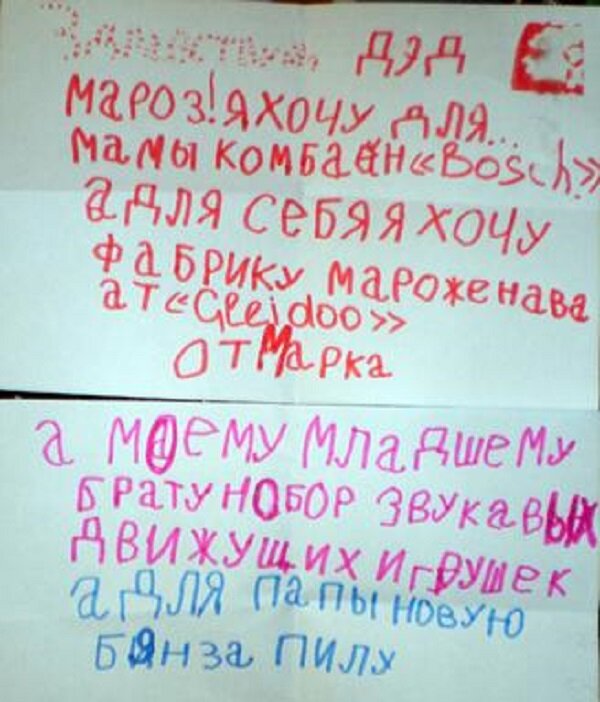 Здраствуй, ДЭД
МАРОЗ! Я ХОЧУ ДЛЯ...
МАМЫ КОМБАЙН «Bosch»
а ДЛЯ СЕБЯ Я ХОЧУ
ФАБРИКУ МАРОЖЕНАВА
аТ «Gleidoo»
ОТ МАРКА
а МОЕМУ МЛАДШЕМУ
БРАТУ НОБОР ЗВУКАВЫХ
ДВИЖУЩИХ ИГРУШЕК
а ДЛЯ ПАПЫ НОВУЮ
БЯНЗА ПИЛУ